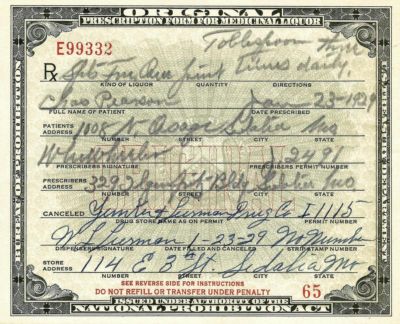 ORIGINAL
PRESCRIPTION FORM FOR MEDICINAL LIQUOR
E99332
Tablespoon three
℞ Spts Fru pint times daily.
KIND OF LIQUOR QUANTITY DIRECTIONS
Chas Pearson Jan 23-1929
FULL NAME OF PATIENT DATE PRESCRIBED
PATIENTS ADDRESS Sedalia Mo
NUMBER STREET CITY STATE
PRESCRIBERS SIGNATURE PRESCRIBERS PERMIT NUMBER
PRESCRIBERS ADDRESS Bldg Sedalia Mo
NUMBER STREET CITY STATE
CANCELED Drug Co I-1115
DRUG STORE NAME AS ON PERMIT PERMIT NUMBER
23-29 No Number
DISPENSERS SIGNATURE DATE FILLED AND CANCELED STRIP STAMP NUMBER
STORE ADDRESS 114 E 3rd St Sedalia Mo
NUMBER STREET CITY STATE
SEE REVERSE SIDE FOR INSTRUCTIONS
DO NOT REFILL OR TRANSFER UNDER PENALTY 65
ISSUED UNDER AUTHORITY OF THE
NATIONAL PROHIBITION ACT
PROHIBITION